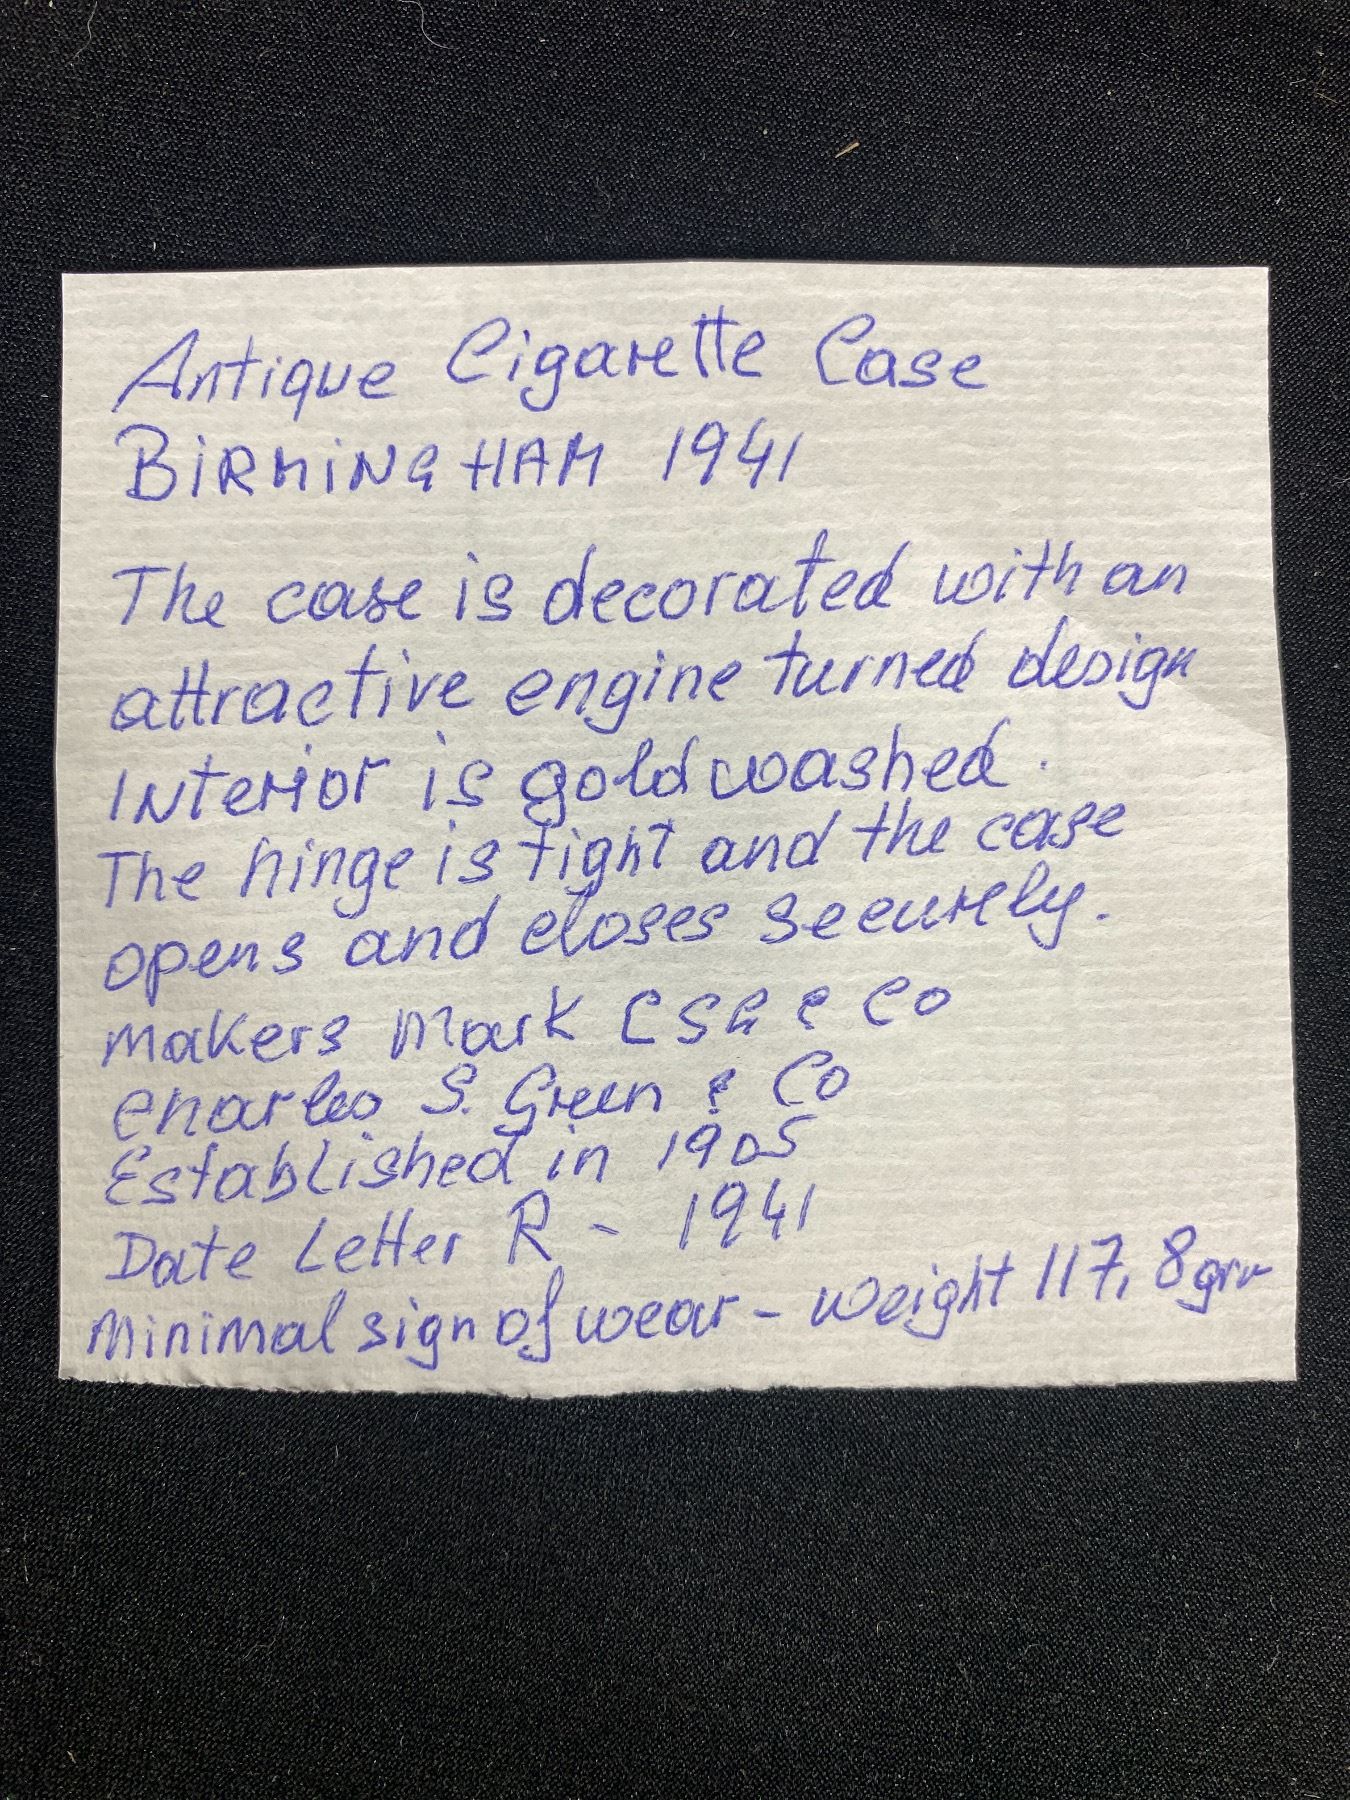 Antique Cigarette Case
BIRMINGHAM 1941
The case is decorated with an
attractive engine turned design
Interior is gold washed.
The hinge is tight and the case
opens and closes securely.
makers mark CSG & Co
Charles S. Green & Co
Established in 1905
Date Letter R - 1941
Minimal sign of wear - weight 117,8 grm